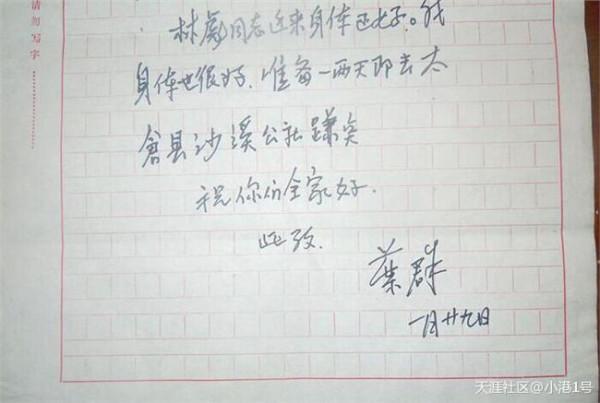 请勿写字
林彪同志近来身体还好。我
身体也很好。准备一两天即去太
仓县沙溪公社蹲点
祝你们全家好.
此致.
叶群
一月廿九日
天涯社区@小港1号